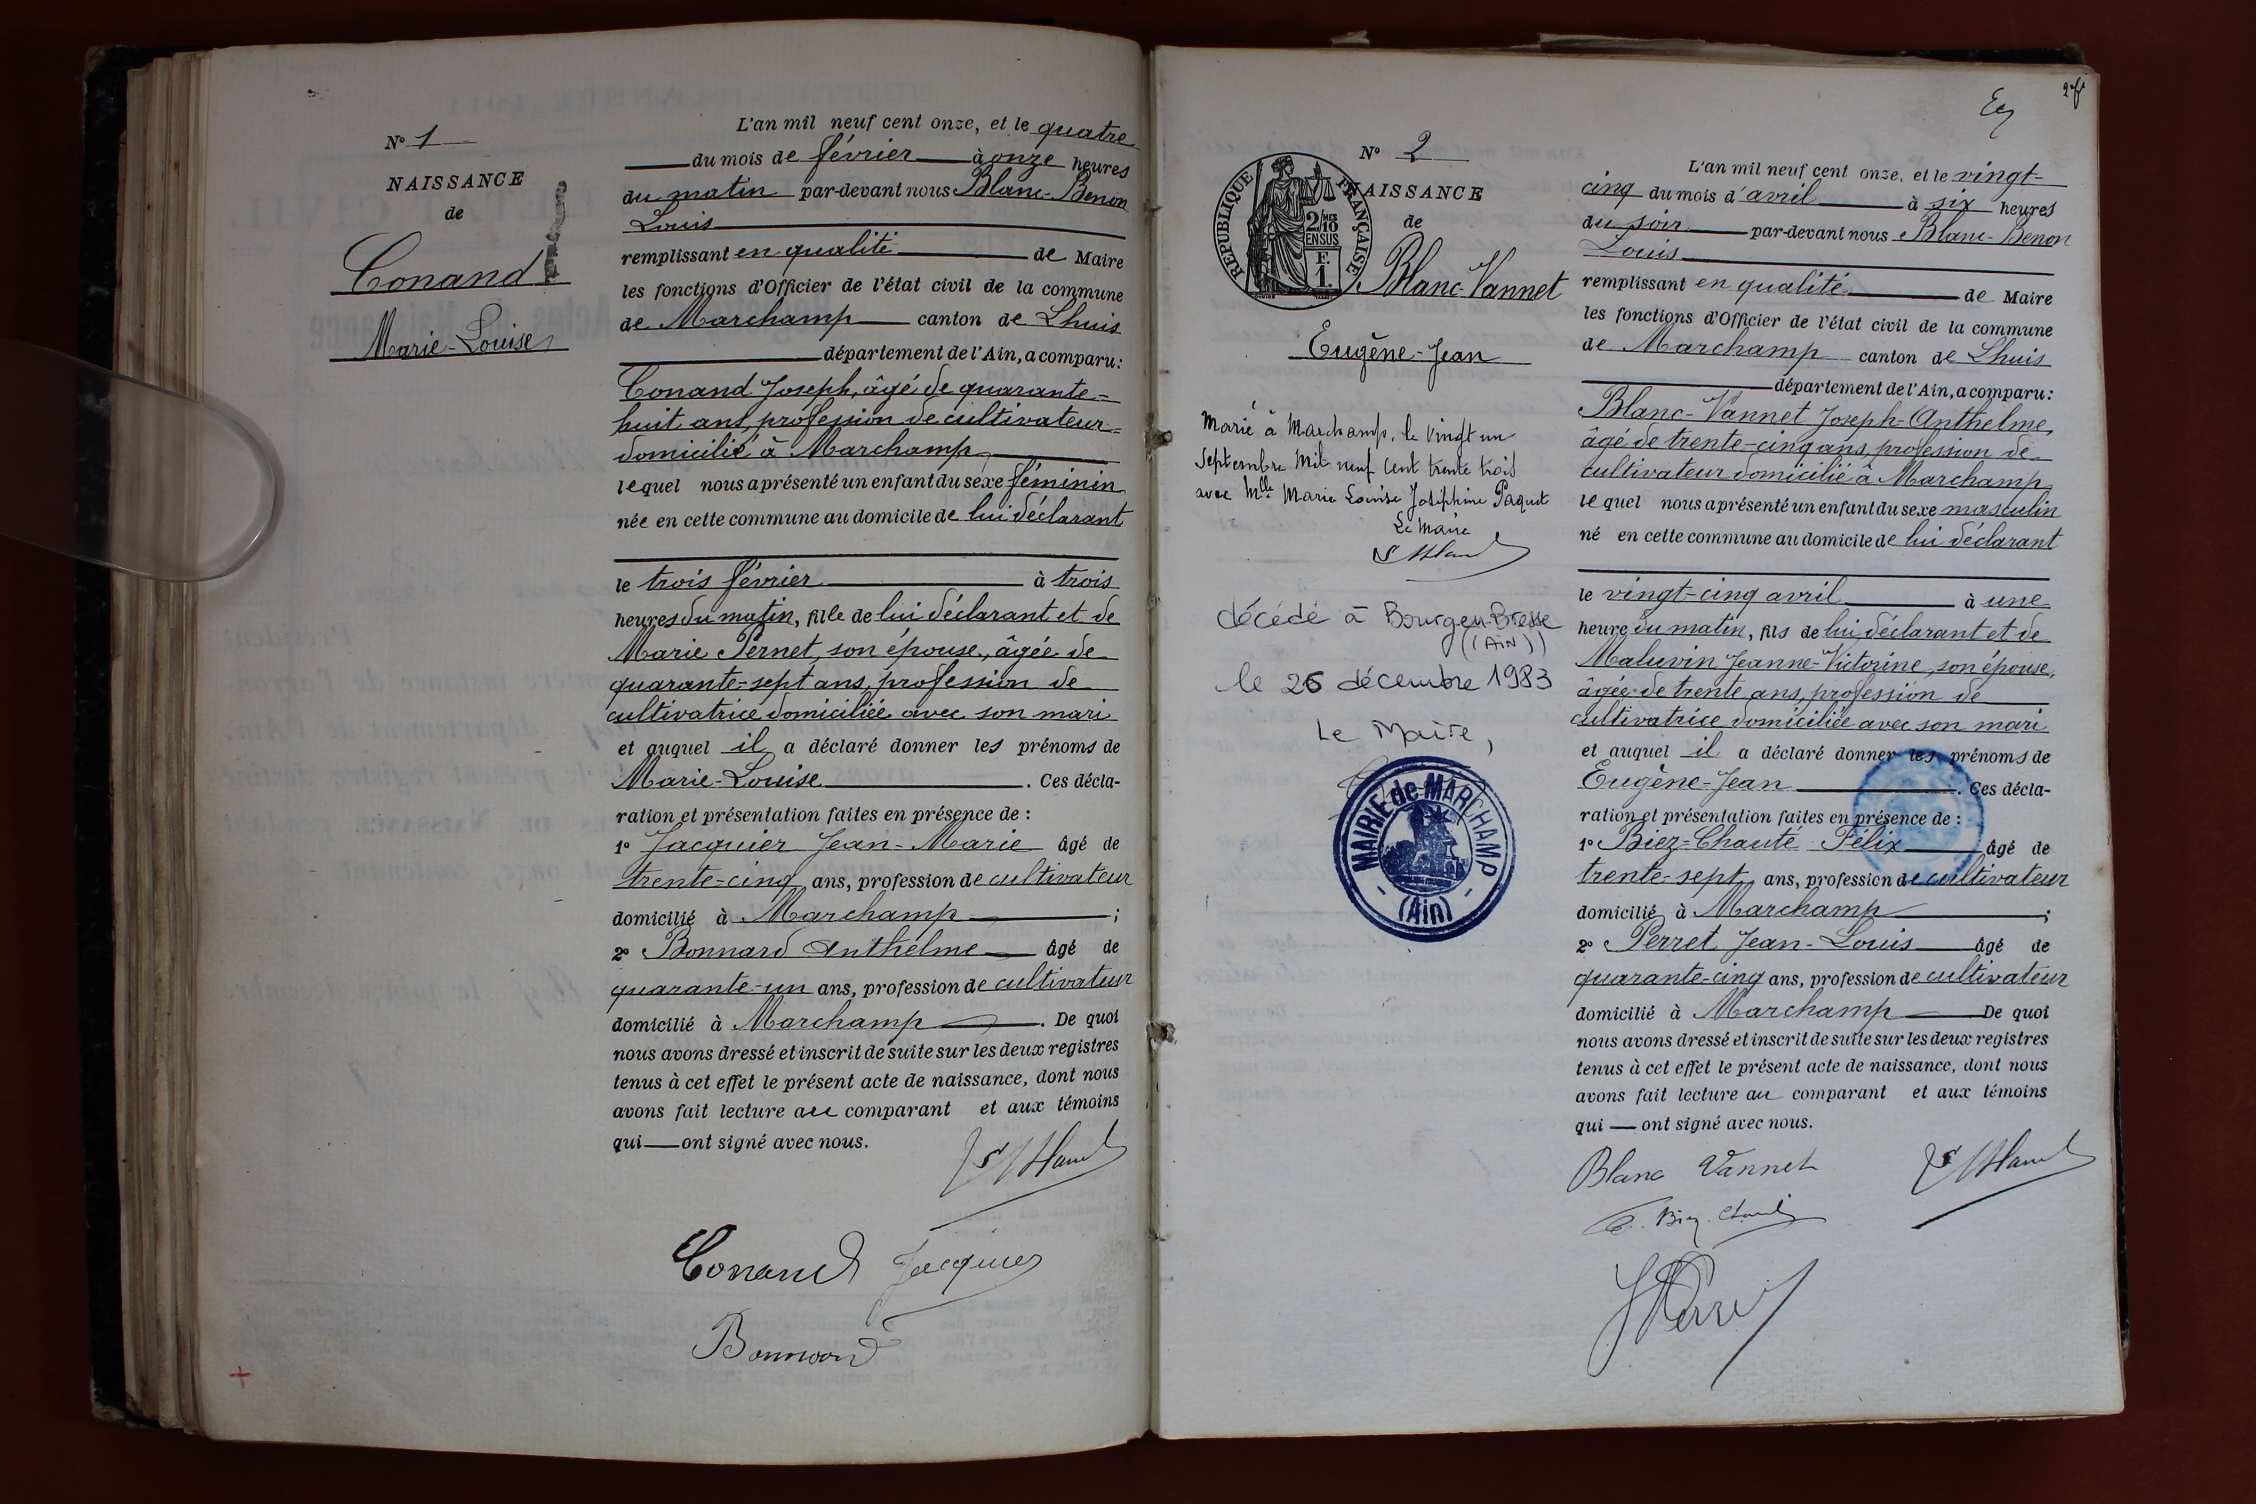 N° 1
NAISSANCE
de
Conand
Marie-Louise
L'an mil neuf cent onze, et le quatre
du mois de février à onze heures
du matin par-devant nous Blanc-Benon
Louis
remplissant en qualité de Maire
les fonctions d'Officier de l'état civil de la commune
de Marchamp canton de Lhuis
département de l'Ain, a comparu:
Conand Joseph, âgé de quarante-
huit ans, profession de cultivateur
domicilié à Marchamp
lequel nous a présenté un enfant du sexe féminin
née en cette commune au domicile de lui déclarant
le trois février à trois
heures du matin, fille de lui déclarant et de
Marie Pernet, son épouse, âgée de
quarante-sept ans, profession de
cultivatrice domiciliée avec son mari
et auquel il a déclaré donner les prénoms de
Marie-Louise. Ces décla-
ration et présentation faites en présence de :
1° Jacquier Jean-Marie âgé de
trente-cinq ans, profession de cultivateur
domicilié à Marchamp ;
2° Bonnard Anthelme âgé de
quarante-un ans, profession de cultivateur
domicilié à Marchamp. De quoi
nous avons dressé et inscrit de suite sur les deux registres
tenus à cet effet le présent acte de naissance, dont nous
avons fait lecture au comparant et aux témoins
qui ont signé avec nous.
Conand Jacquier
Bonnard
2
N° 2
NAISSANCE
de
REPUBLIQUE FRANÇAISE
2/10 MES
EN SUS
F.
1.
Blanc-Vannet
Eugène-Jean
Marié à Marchamp, le vingt un
Septembre mil neuf cent trente trois
avec Mlle Marie Louise Joséphine Paquet
Le Maire
décédé à Bourg-en-Bresse
(AIN)
le 26 décembre 1983
Le Maire,
MAIRIE de MARCHAMP
(Ain)
L'an mil neuf cent onze, et le vingt-
cinq du mois d'avril à six heures
du soir par-devant nous Blanc-Benon
Louis
remplissant en qualité de Maire
les fonctions d'Officier de l'état civil de la commune
de Marchamp canton de Lhuis
département de l'Ain, a comparu:
Blanc-Vannet Joseph-Anthelme,
âgé de trente-cinq ans, profession de
cultivateur domicilié à Marchamp
lequel nous a présenté un enfant du sexe masculin
né en cette commune au domicile de lui déclarant
le vingt-cinq avril à une
heure du matin, fils de lui déclarant et de
Maluvin Jeanne-Victorine, son épouse,
âgée de trente ans, profession de
cultivatrice domiciliée avec son mari
et auquel il a déclaré donner les prénoms de
Eugène-Jean. Ces décla-
ration et présentation faites en présence de :
1° Biez-Chauté Félix âgé de
trente-sept ans, profession de cultivateur
domicilié à Marchamp ;
2° Perret Jean-Louis âgé de
quarante-cinq ans, profession de cultivateur
domicilié à Marchamp De quoi
nous avons dressé et inscrit de suite sur les deux registres
tenus à cet effet le présent acte de naissance, dont nous
avons fait lecture au comparant et aux témoins
qui ont signé avec nous.
Blanc Vannet